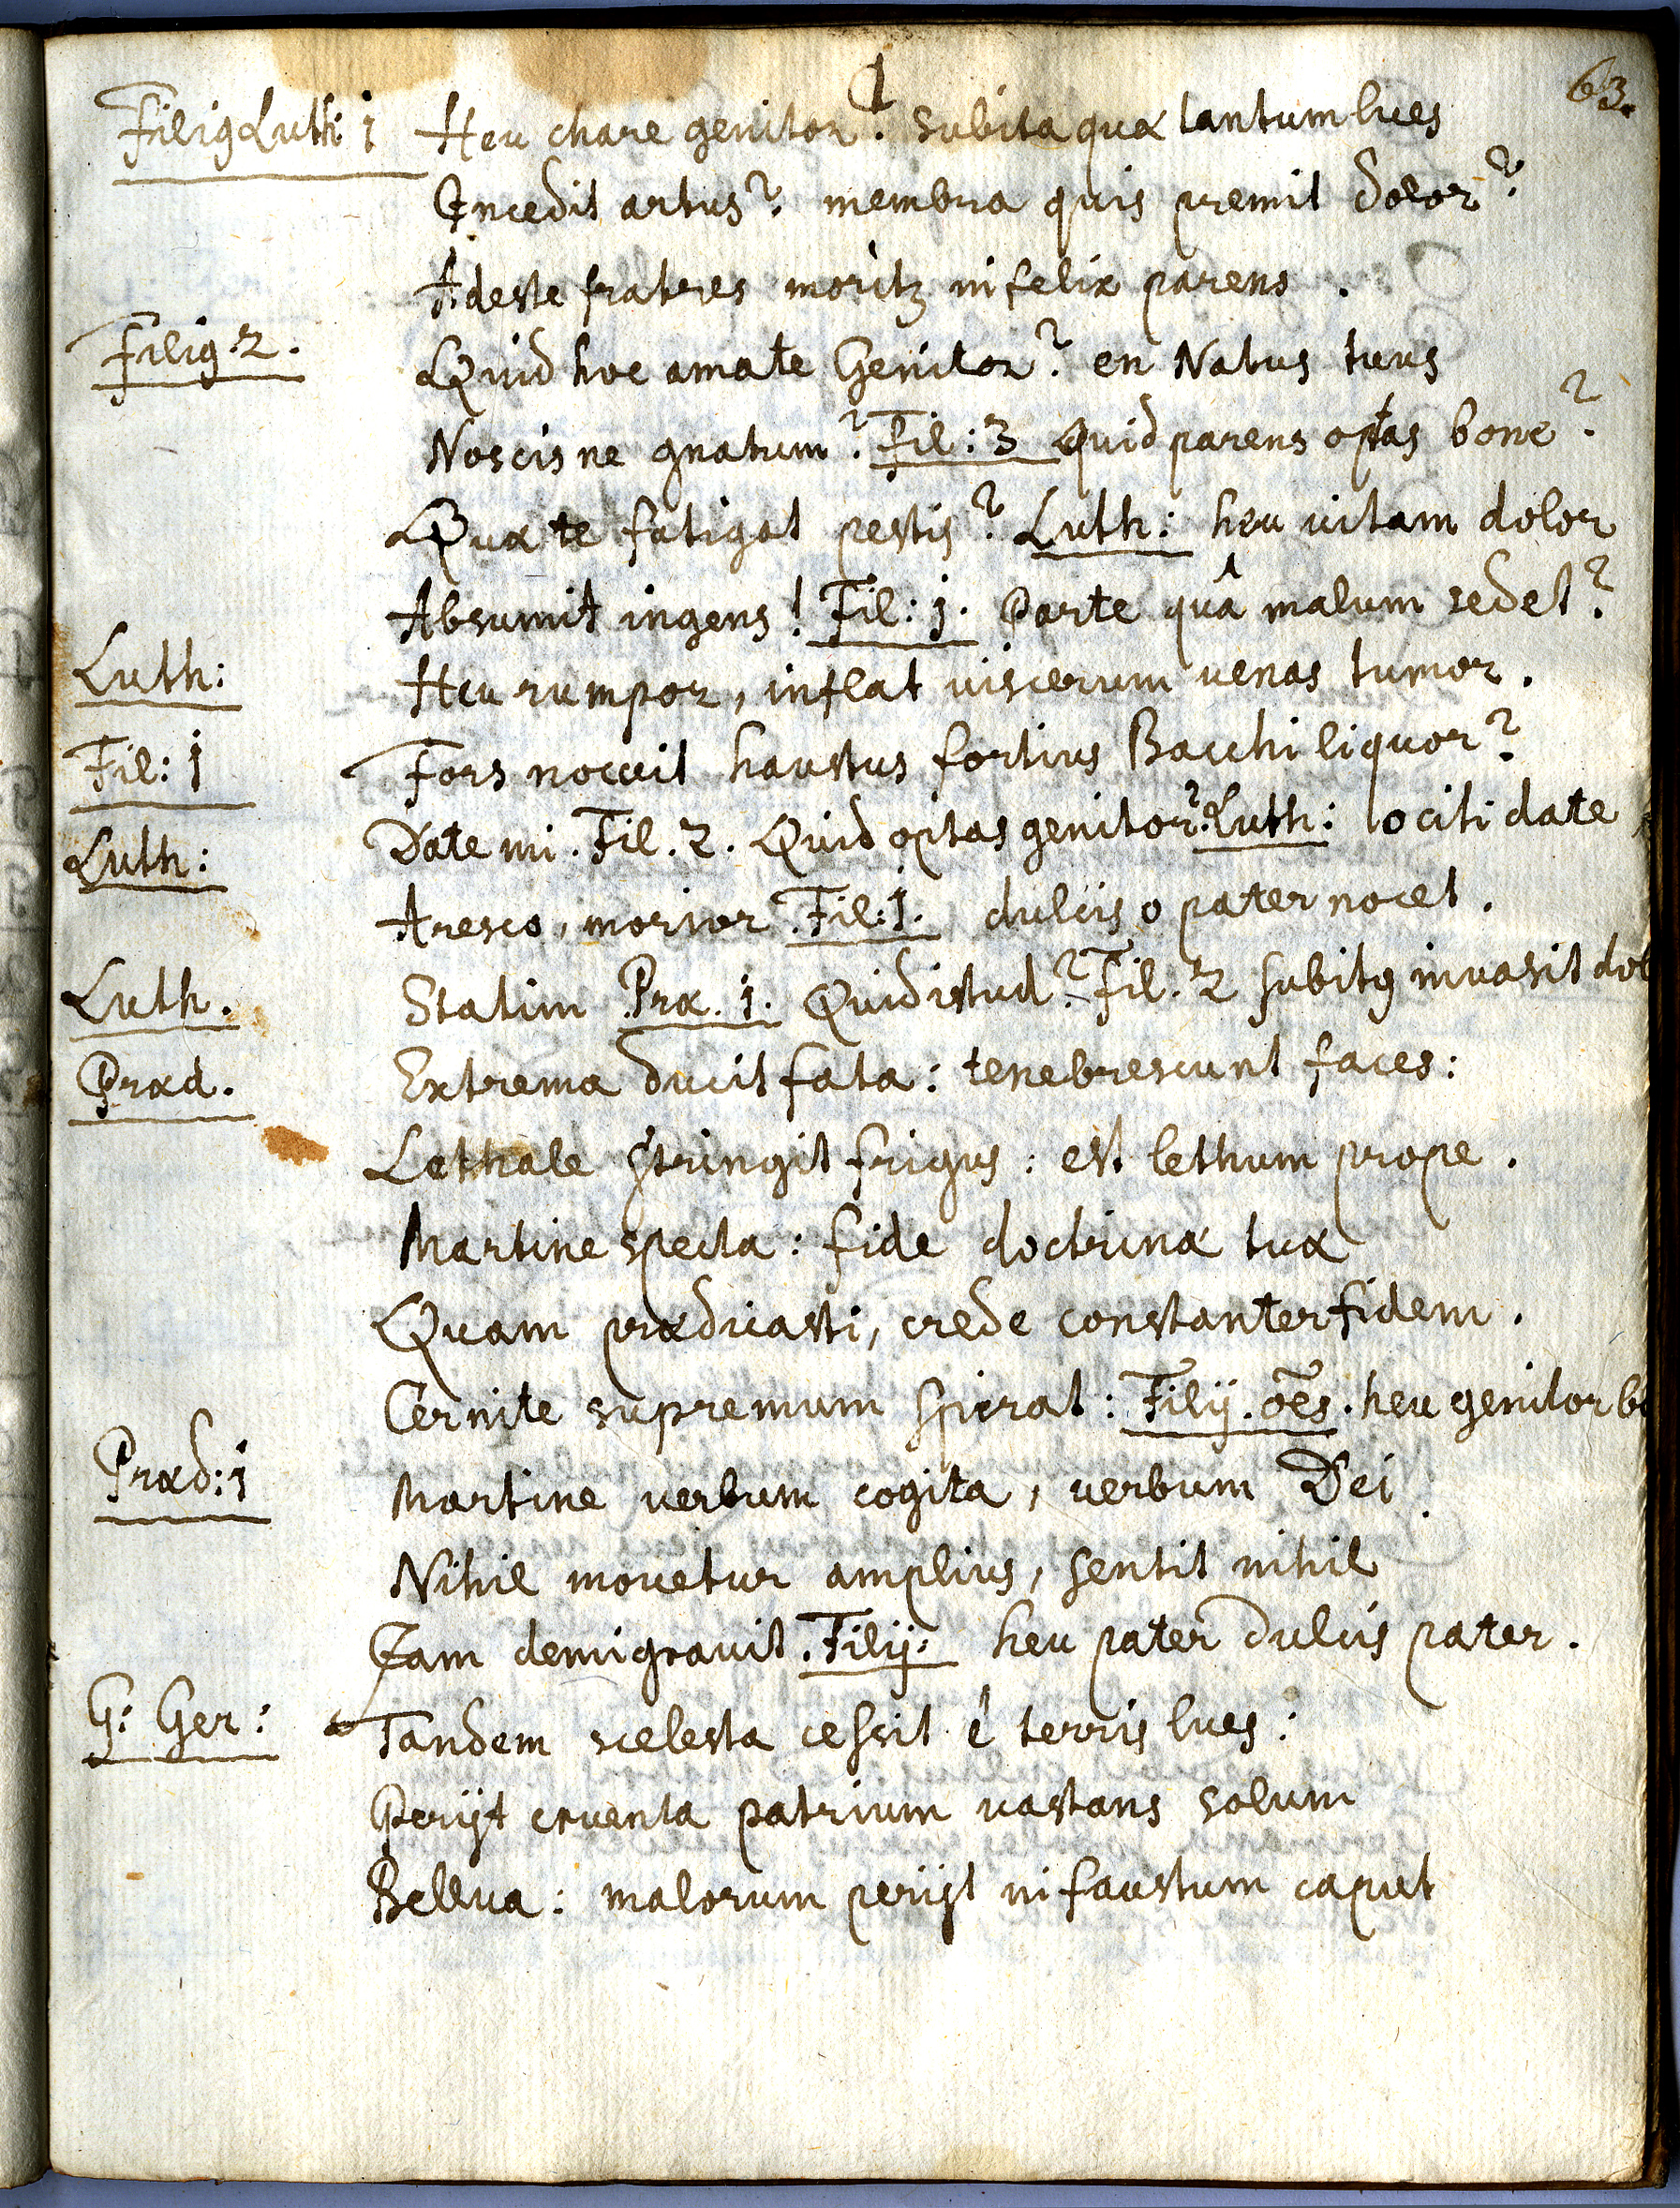 63.
Filiꝰ Luth: 1 Heu chare genitor? subita quæ tantum lues
Incedit artus? membra quis premit dolor?
Adeste fratres moritꝛ infelix parens.
Filiꝰ. 2. Quid hoc amate Genitor? en Natus tuus
Noscis ne gnatum? Fil: 3 Quid parens optas bone?
Quæ te fatigat pestis? Luth: heu vitam dolor
Absumit ingens! Fil: 1. Parte quâ malum sedet?
Luth: Heu rumpor, inflat viscerum venas tumor.
Fil: 1 Fors nocuit haustus fortius Bacchi liquor?
Luth: Date mi. Fil. 2. Quid optas genitor? Luth: o citi date
Aresco, morior. Fil: 1. dulcis o pater nocet.
Luth. Statim Præ. 1. Quid istud? Fil. 2 subitꝰ invasit dol
Præd. Extrema ducit fata: tenebrescunt faces:
Lethale stringit frigus: est lethum prope.
Martine specta: fide doctrinæ tuæ
Quam prædicasti, crede constanter fidem.
Cernite supremum spirat: Filij. oēs. heu genitor b
Præd: 1 Martine verbum cogita, verbum Dei.
Nihil movetur amplius, sentit nihil
Iam demigravit. Filij: heu pater dulcis pater.
G: Ger: Tandem scelesta cessit è terris lues:
Perijt cruenta patrium vastans solum
Bellua: malorum perijt infaustum caput